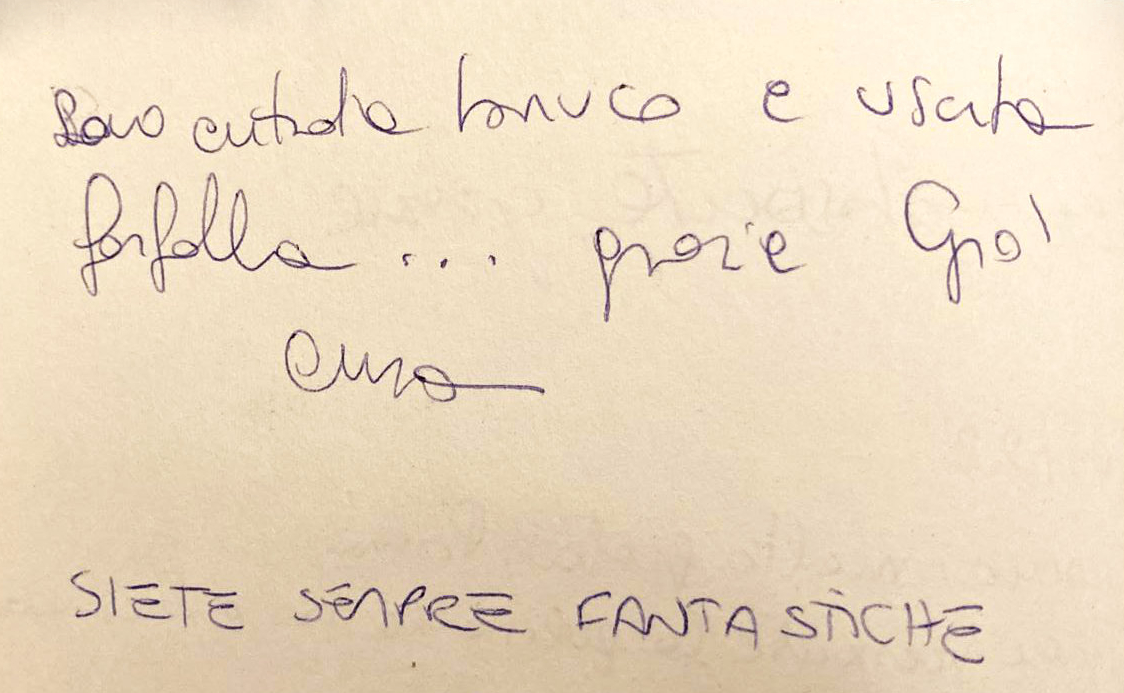 Sono entrata bruco e uscita
farfalla... grazie Giò
SIETE SEMPRE FANTASTICHE